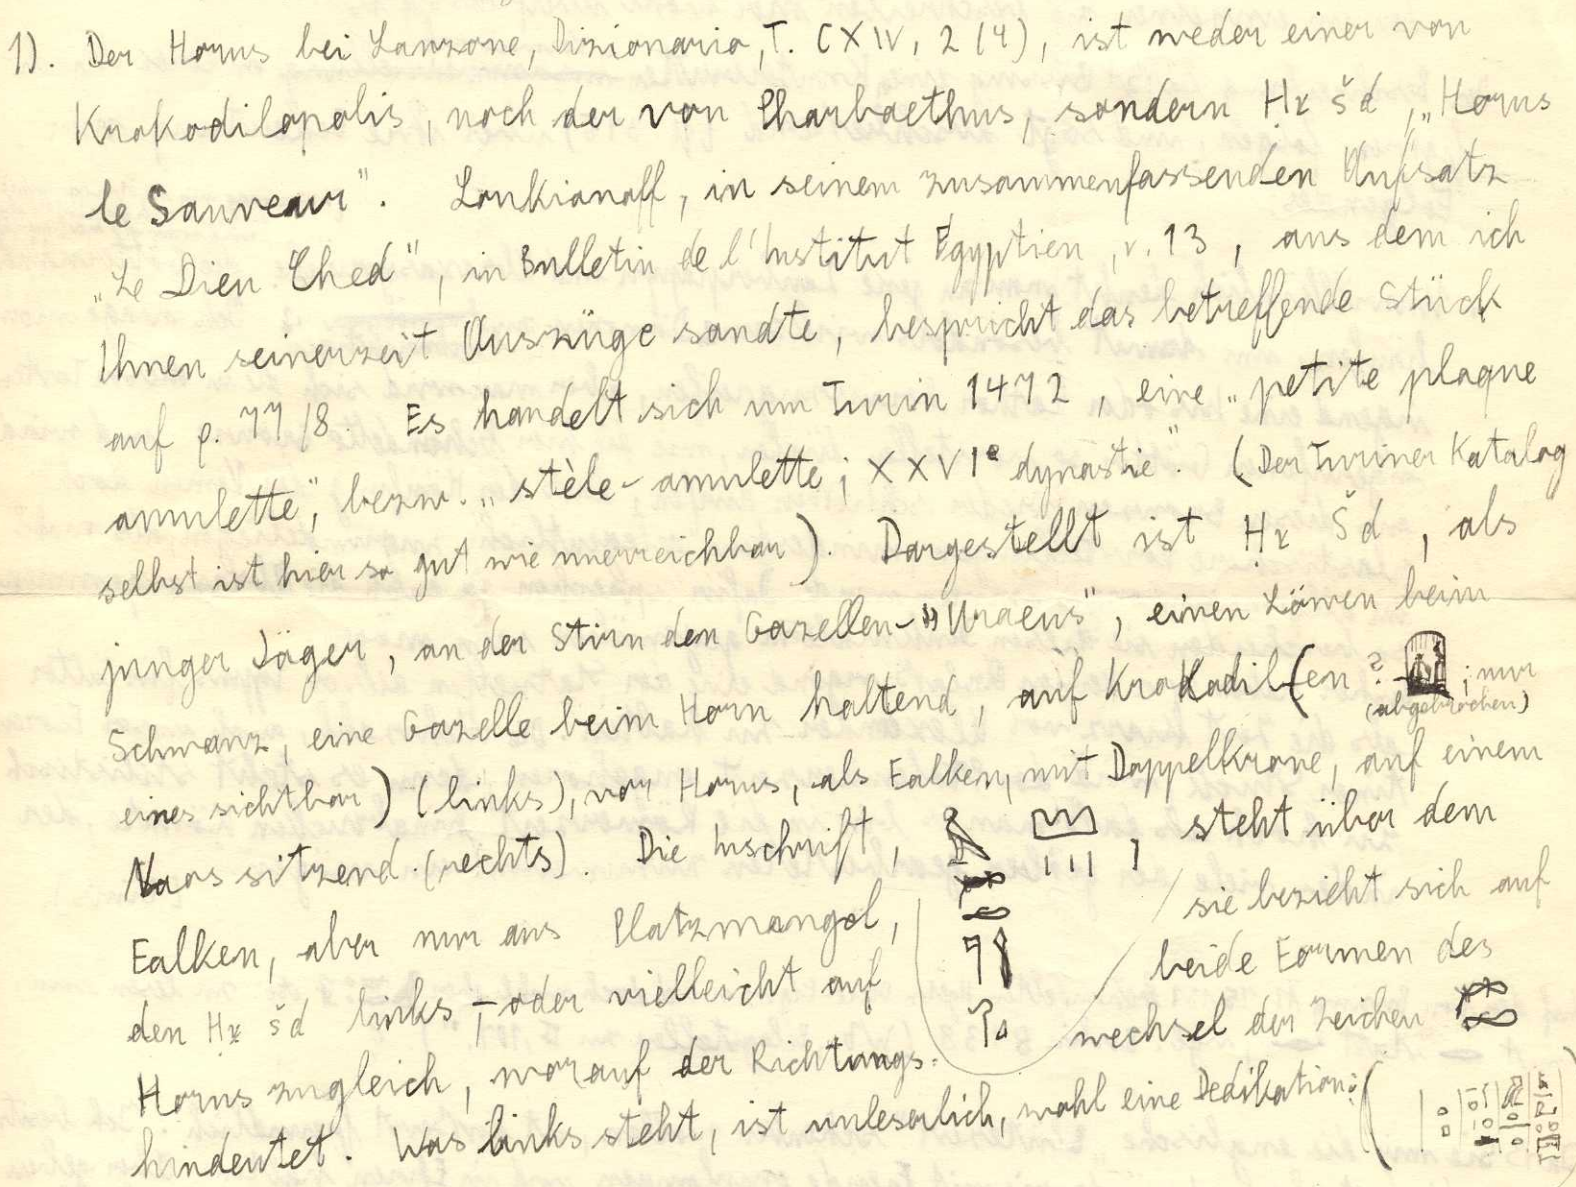 1). Der Horus bei Lanzone, Dizionario, T. CXIV, 2 (4), ist weder einer von
Krokodilopolis, noch der von Pharbaethus, sondern Ḥr šd, „Horus
le Sauveur". Loukianoff, in seinem zusammenfassenden Aufsatz
„Le Dieu Ched", in Bulletin de l'Institut Égyptien, v. 13, aus dem ich
Ihnen seinerzeit Auszüge sandte, bespricht das betreffende Stück
auf p. 77/8. Es handelt sich um Turin 1472, eine „petite plaque
amulette", bezw. „stèle-amulette; XXVIe dynastie". (Der Turiner Katalog
selbst ist hier so gut wie unerreichbar). Dargestellt ist Ḥr Šd, als
junger Jäger, an der Stirn den Gazellen-„Uraeus", einen Löwen beim
Schwanz, eine Gazelle beim Horn haltend, auf Krokodil(en ? ; nur
(abgebrochen)
eines sichtbar) (links), vor Horus, als Falken, mit Doppelkrone, auf einem
Naos sitzend (rechts). Die Inschrift, , steht über dem
Falken, aber nur aus Platzmangel, sie bezieht sich auf
den Ḥr šd links, – oder vielleicht auf beide Formen des
Horus zugleich, worauf der Richtungs= wechsel der Zeichen
hindeutet. Was links steht, ist unleserlich, wohl eine Dedikation: (